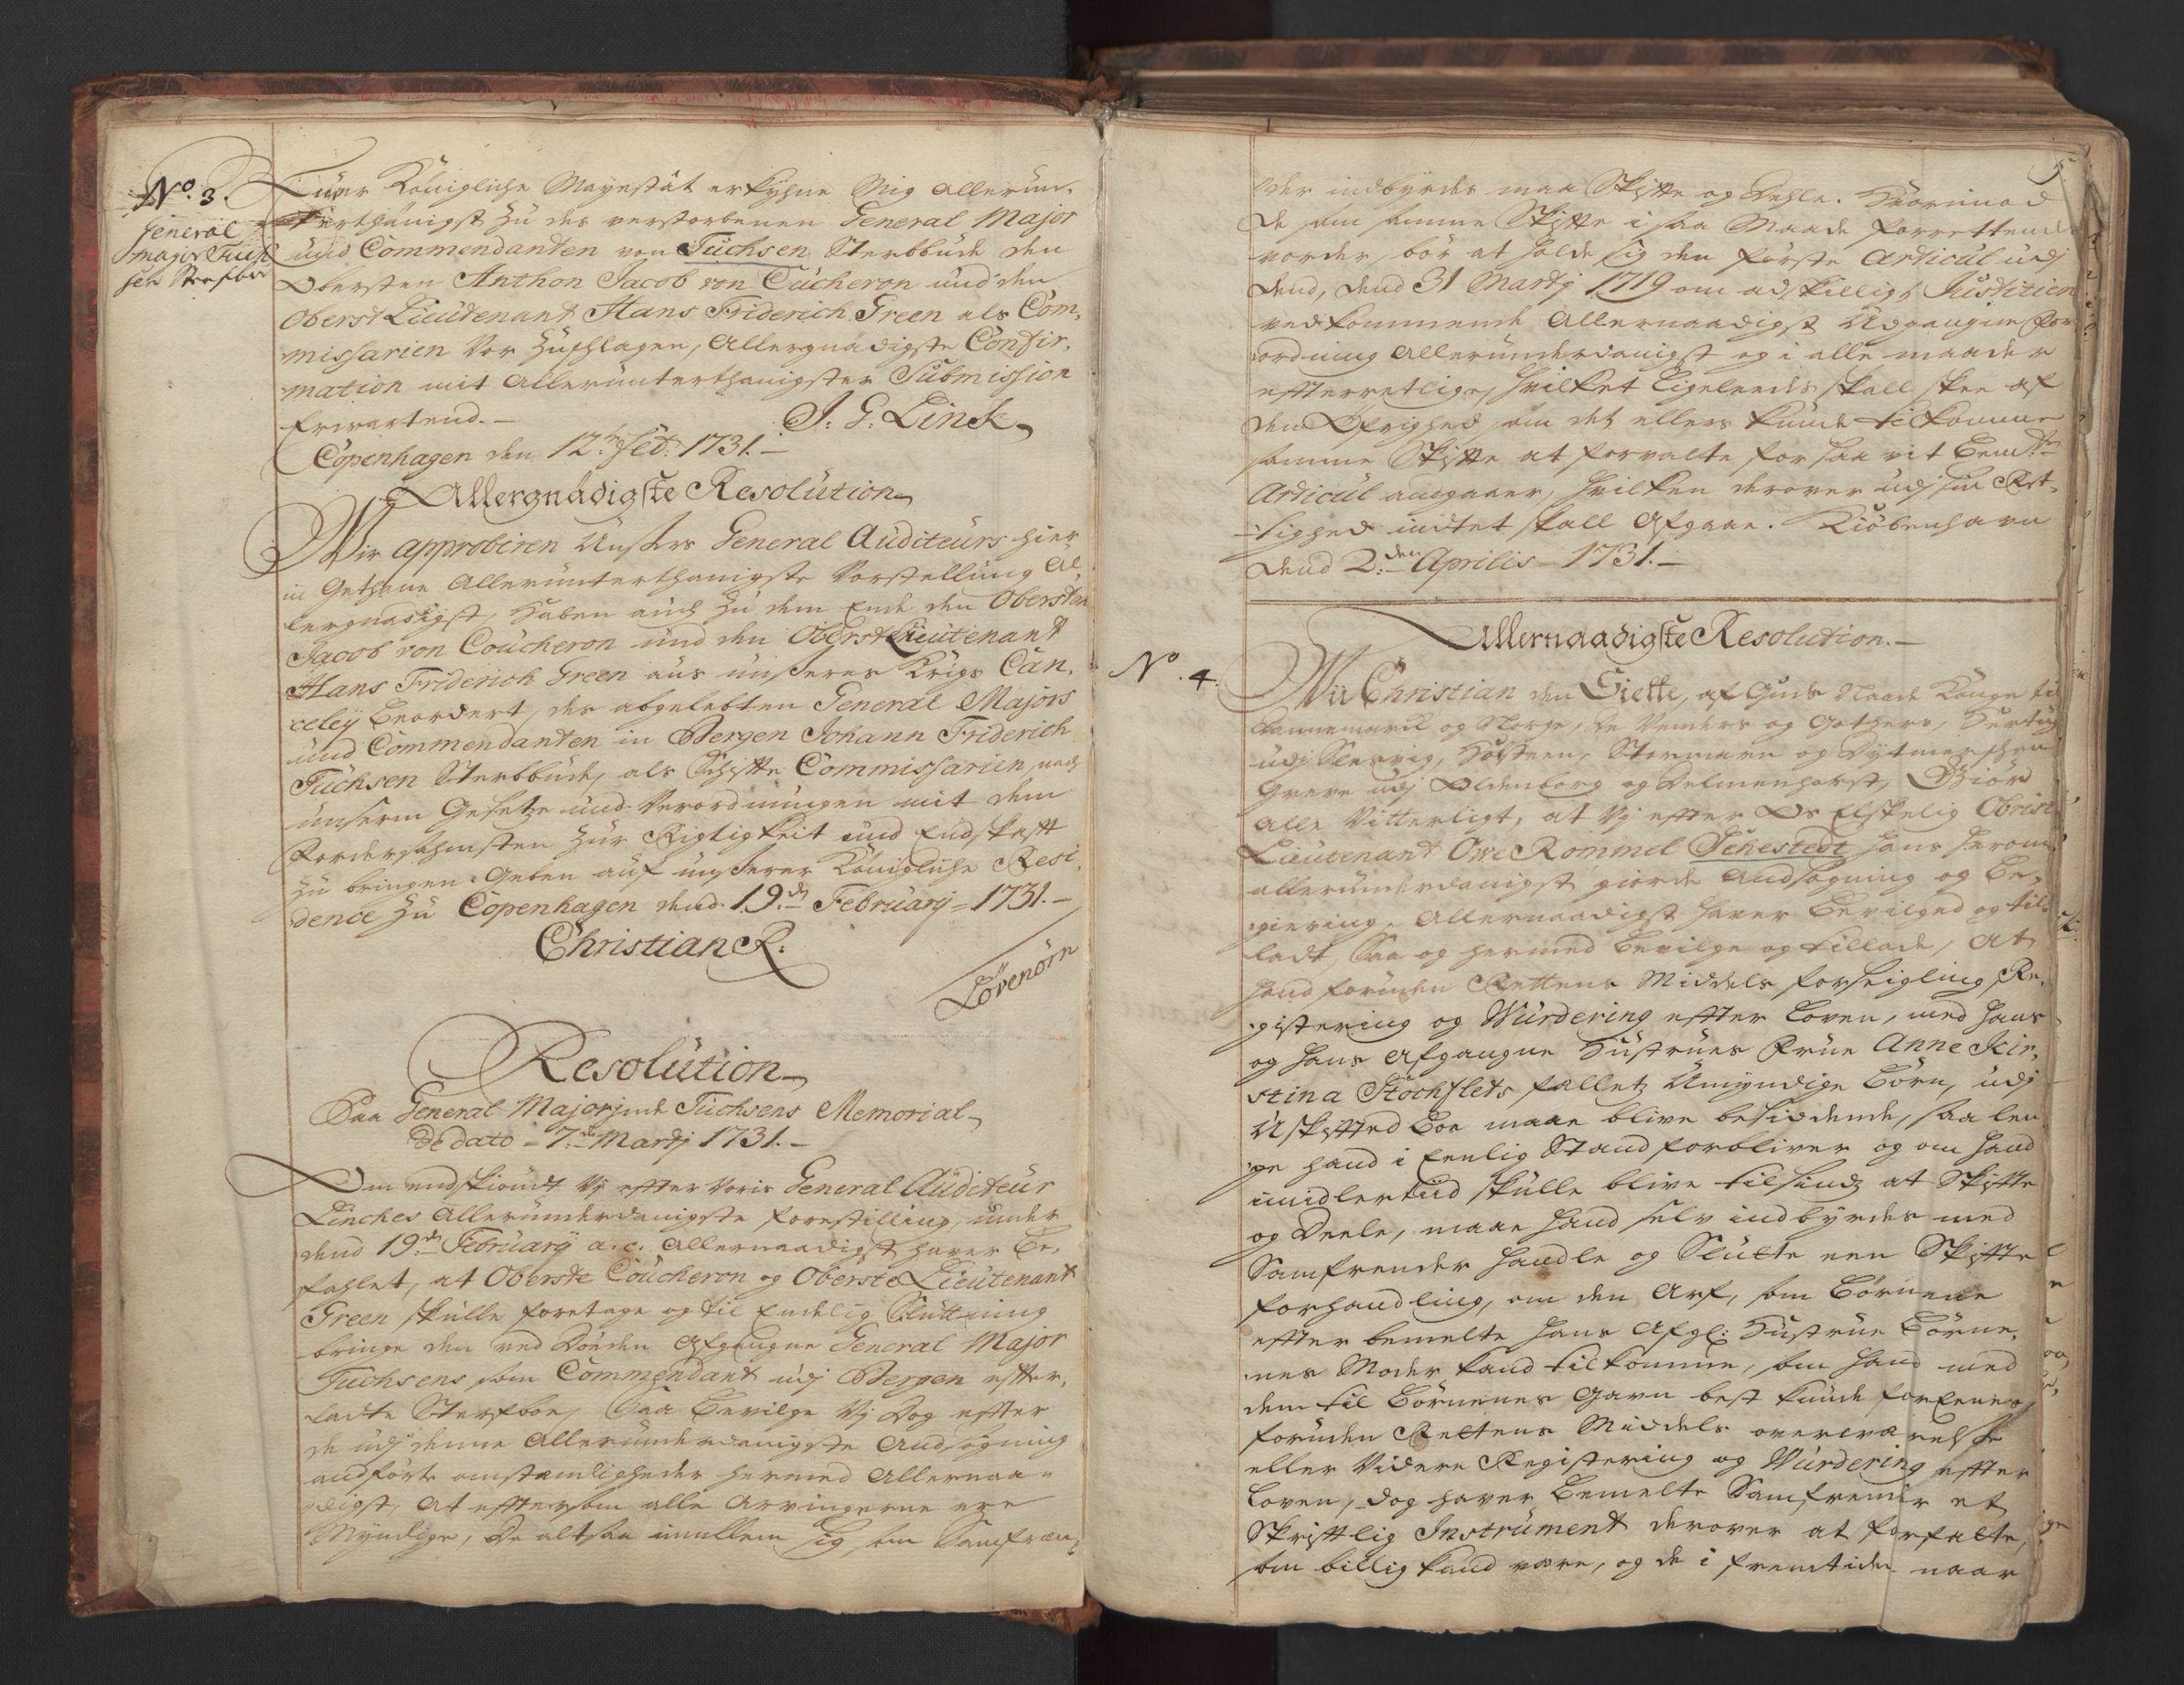 No. 3.
General
major Tuch
sen Sterfboe
Eüer Königliche Mayestät erkyhne Mig allerün-
terthänigst zu des verstorbenen General Major
und Commendanten von Tüchsen Sterbbude den
Obersten Anthon Jacob von Cücheron und den
Oberst Lieutenant Hans Friderich Green als Com-
missarien Vor Zuschlagen, Allergnädigste Confir-
mation mit Allerünterthänigster Submission
Erwartend.-
J. G. Linck
Copenhagen den 12. Feb: 1731.-
Allergnädigste Resolution
Wir approbiren Unsers General Auditeurs hier
in Gethane Allerunterthänigste Vorstellung Al-
lergnädigst, Haben auch zu dem Ende den Obersten
Jacob von Coucheron und den Oberst Lieutenant
Hans Friderich Green aus unserer Krigs Can-
celey Beordert, des abgelebten General Majors
und Commendanten in Bergen Johann Friderich
Tüchsen Sterbbude, als Schifte Commissarien, nach
unserm Gesetze und Verordnungen mit dem
Fordersahmsten zur Rigtigkeit und Endskafft
zu bringen. Geben auf unserer Königliche Resi-
dence zu Copenhagen dend. 19. February 1731.-
Christian R.
Lövenörn
Resolution
Paa General Majorinde Tüchsens Memorial
de dato 7. Martj 1731.-
Om endskiöndt Vj efter Voris General Auditeur
Linches Alleründerdanigste forestilling, under
dend 19. February a. c. Allernaadigst haver be-
fahlet, at Oberste Coucheron og Oberste Lieutenant
Green skulle foretage og til Endelig Slutning
bringe den ved Döden Afgangne General Major
Tuchsens som Commendant udj Bergen efter-
ladte Sterfboe, Saa Bevilge Vj Dog efter
de udj denne Allerunderdanigste Ansögning
anförte omstændligheder hermed Allernaa-
digst, at eftersom alle Arvingerne ere
Myndige, De altsaa imellem sig, som Samfræn-
5
der indbyrdes maa Skifte og Dehle. Hvorimod
de som samme Skifte i saa Maade forrettende
vorder, bör at holde sig den förste Articul udj
dend, dend 31 Martij 1719 om adskilligt Justitien
vedkommende Allernaadigst Udgangne For-
ordning Allerunderdanigst og i alle maader
efterretlig, hvilket Ligeleedes skall skee af
den Öfrighed som det ellers kunde tilkomme
samme Skifte at forvalte for saa vit Bemte
Articul angaaer, hvilken derover udj sin Ret-
tighed intet skall afgaae. Kiöbenhavn
dend 2den Aprilis 1731.-
Allernaadigste Resolution.-
No. 4.
Wii Christian den Siette, af Guds Naade Konge til
Dannemarck og Norge, De Venders og Gothers, Hertug
udj Slesvig, Holsteen, Stormarn og Dytmerschen
Greve udj Oldenborg og Delmenhorst, Giör
alle Vitterligt, at Vj efter Os Elskelig Obrist
Lieutenant Owe Rommel Sehestedt hans herom
allerunderdanigst giorde Ansögning og Be-
giering, Allernaadigst haver Bevilged og til-
ladt, Saa og hermed Bevilge og tillade, At
hand foruden Rettens Middels forseigling, Re-
gistering og Würdering efter Loven, med hans
og hans Afgangne Hustrues Frue Anne Kir-
stina Stöchflets fellets Umyndige Börn, udj
Uskifted Boe maae blive besiddende, saa len-
ge hand i Eenlig Stand forbliver og om hand
imidlertiid skulle blive tilsindz at Skifte
og Deele, maae hand selv indbyrdes med
Samfrender handle og Slutte een Skifte
forhandling, om den Arf, som Börnene
efter bemelte hans Afgl: Hustrue Börne-
nes Moder kand tilkomme, som hand med
dem til Börnenes Gavn best kunde foreenes,
foruden Rettens Middels overværelse
eller Videre Registering og Würdering efter
Loven, dog haver Bemelte Samfrender et
Skriftlig Instrument derover at forfatte,
som billig kand være, og de i fremtiden naar